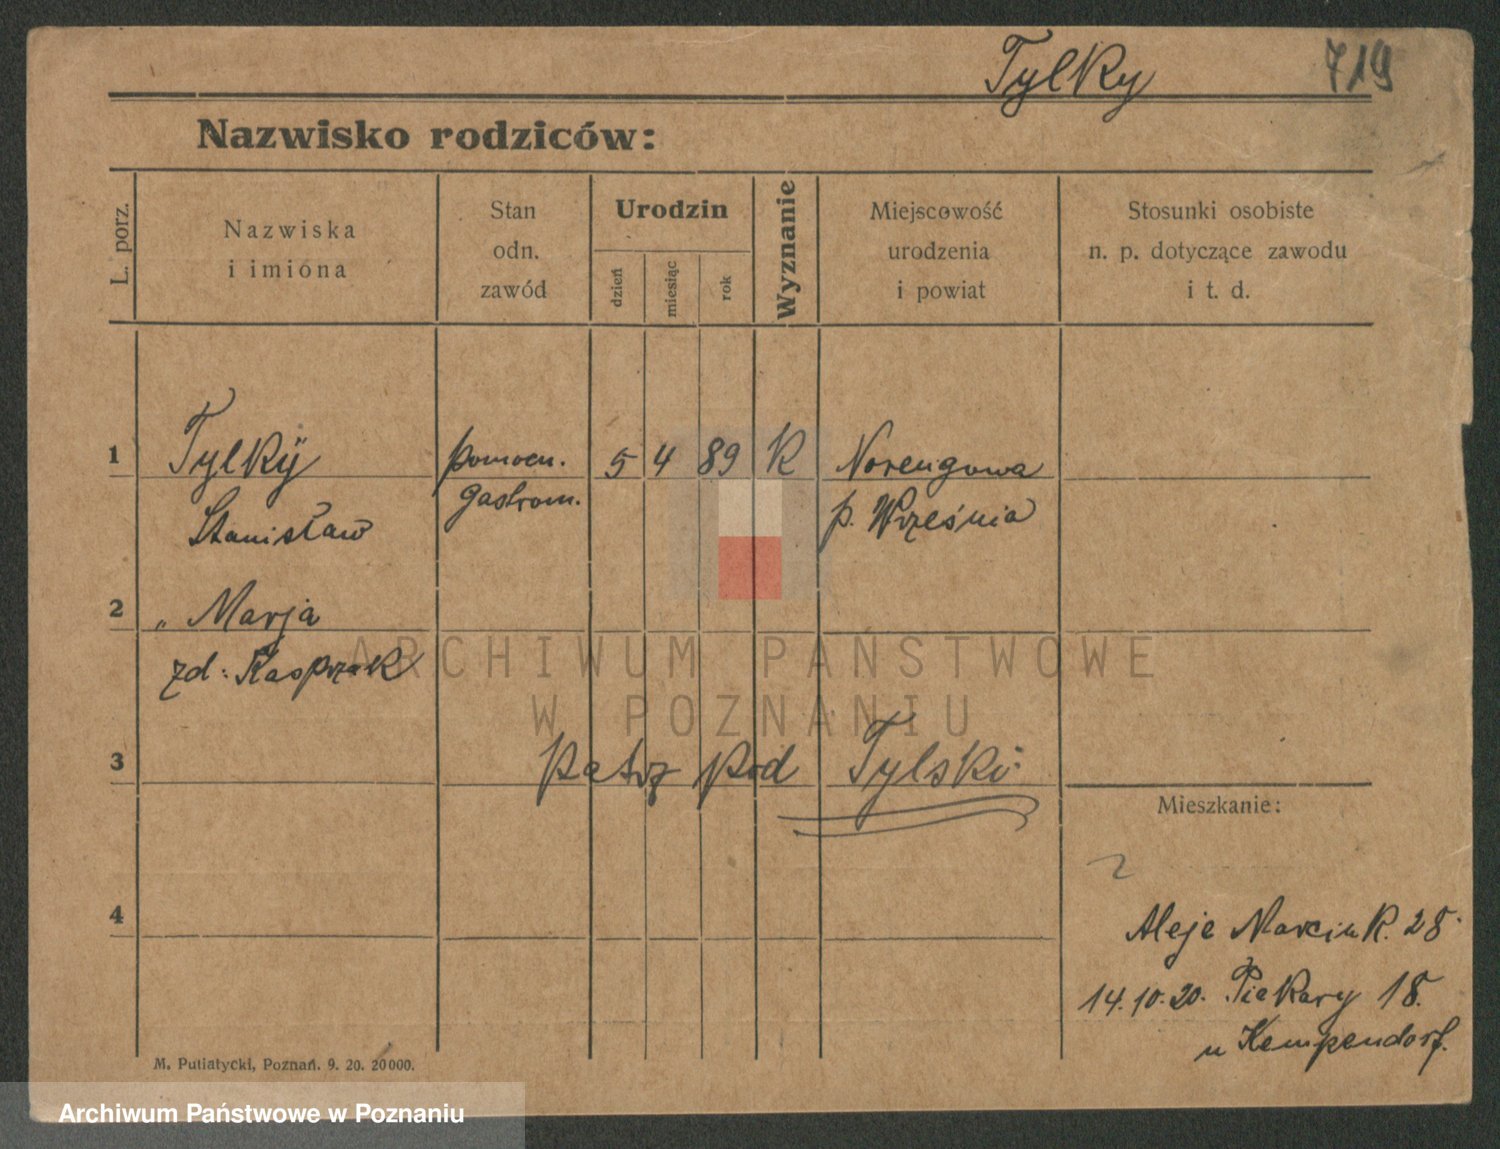 Tylky 719
Nazwisko rodziców:
L. porz.
Nazwiska
i imiona
Stan
odn.
zawód
Urodzin
dzień
miesiąc
rok
Wyznanie
Miejscowość
urodzenia
i powiat
Stosunki osobiste
n. p. dotyczące zawodu
i t. d.
1 Tylkÿ pomocn. 5 4 89 K
Stanisław gastrom. p. Września
2 „ Marja
zd: Kasprzak
ARCHIWUM PAŃSTWOWE
W POZNANIU
3 patrz pod Tylski
Mieszkanie:
4
Aleje Marcink. 28
14.10.20. Piekary 18.
u Kempendorf.
M. Putiatycki, Poznań. 9. 20. 20000.
Archiwum Państwowe w Poznaniu